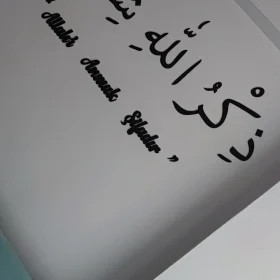 ذِكْرُ اللَّهِ
Allah'ı Anmak Şifadır”